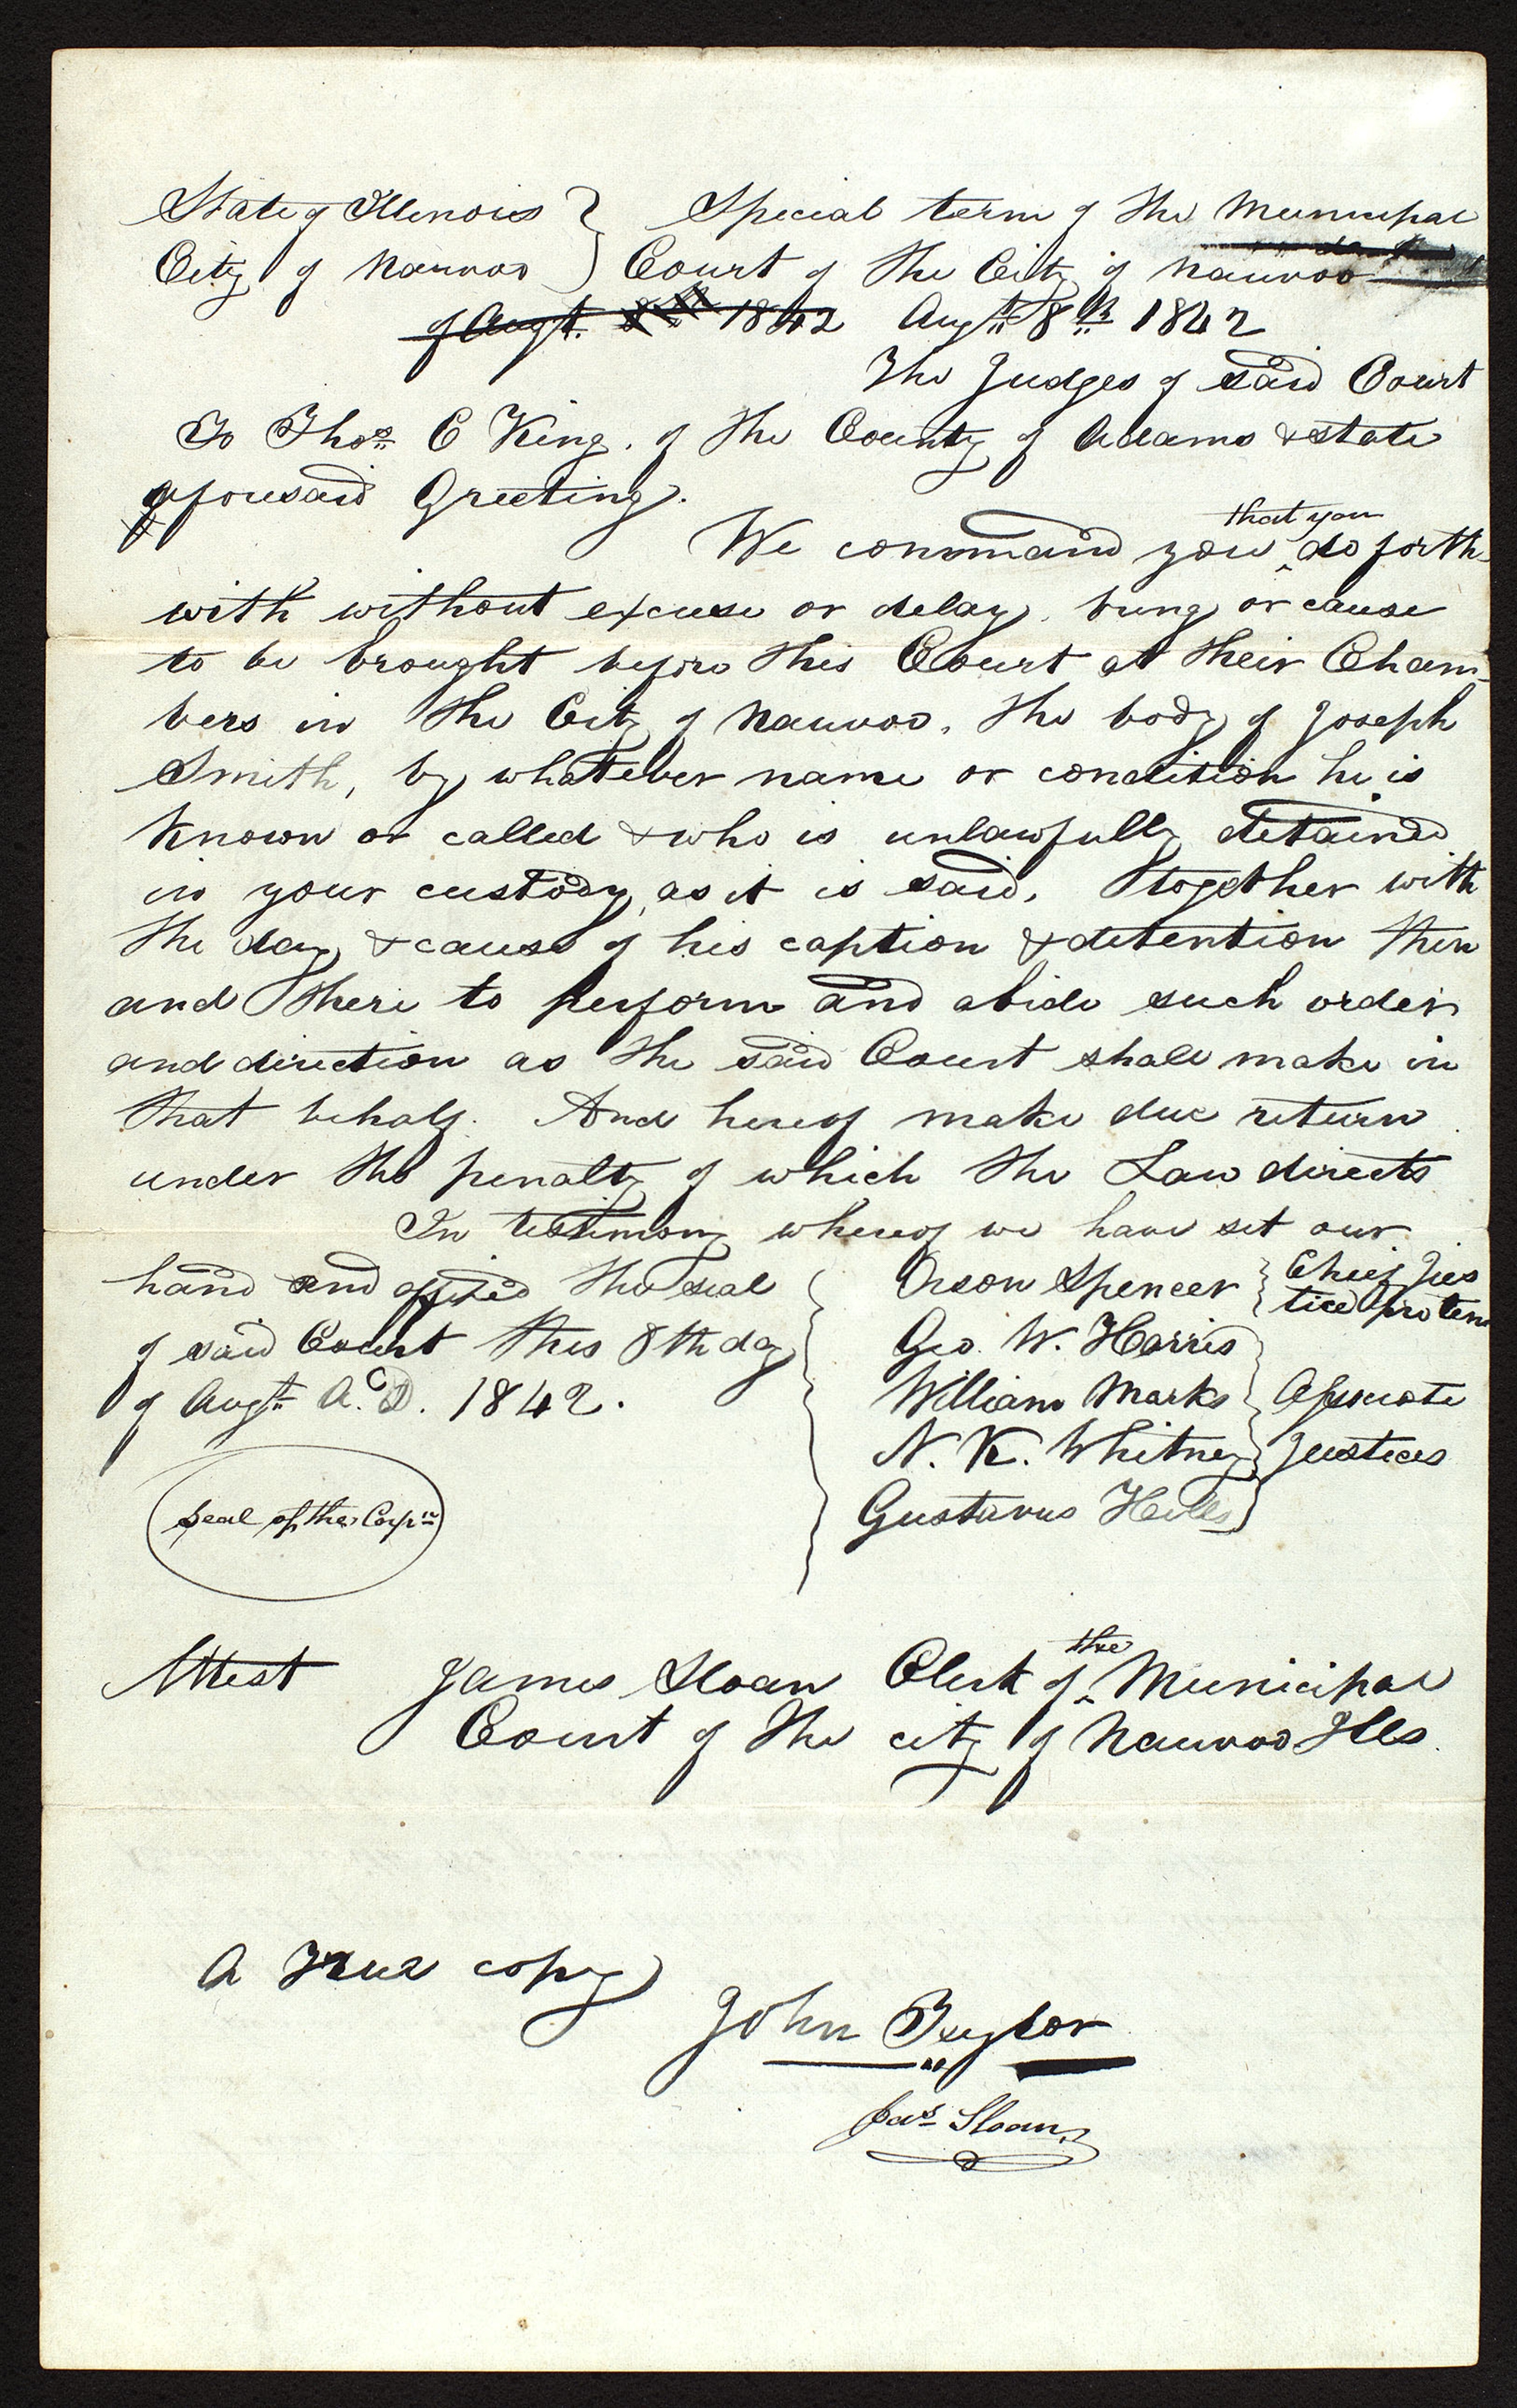 State of Illinois } Special term of the Municipal
City of Nauvoo } Court of the City of Nauvoo
of Augt. 8th 1842 Augt 8th 1842
The Judges of said Court
To Thos. C King. of the County of Adams & state
aforesaid Greeting.
We command you that you do forth-
with without excuse or delay, bring or cause
to be brought before this Court at their Cham-
bers in the City of Nauvoo, the body of Joseph
Smith, by whatever name or condition he is
known or called & who is unlawfully detained
in your custody, as it is said, together with
the day & cause of his caption & detention then
and there to perform and abide such order
and direction as the said Court shall make in
that behalf. And hereof make due return
under the penalty of which the Law directs
In testimony whereof we have set our
hand and affixed the seal { Orson Spencer } Chief Jus
tice pro tem
of said Court this 8th day Geo. W. Harris
of Augt A.D. 1842. William Marks } Associate
N. K. Whitney } Justices
Seal of the Corpn Gustavus Hills
Attest James Sloan Clerk of the Municipal
Court of the city of Nauvoo Ills.
A True copy
John Taylor
Jas Sloan